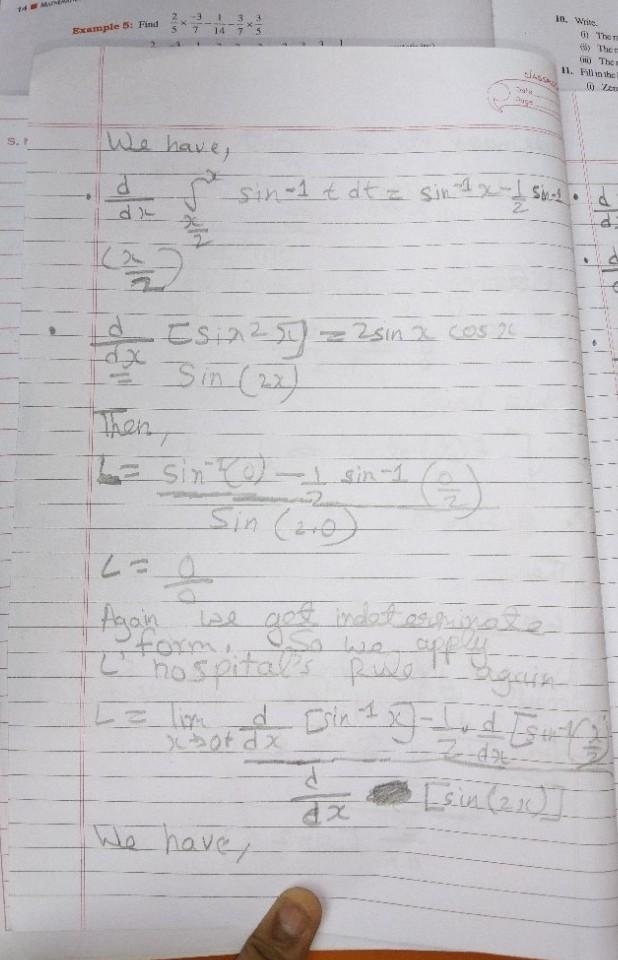 14 ■
Example 5: Find 2/5 × -3/7 - 1/14 - 3/7 × 3/5
10. Write.
(i)
(ii)
(iii)
11. Fill in the
(i)
Date
Page
We have,
• d/dx ∫_{x/2}^{x} sin-1 t dt = sin-1 x - 1/2 sin-1
(x/2)
• d/dx [sin2x] = 2sin x cos x
= Sin (2x)
Then,
L = sin-1(0) - 1/2 sin-1 (0/2) / Sin (2.0)
L = 0/0
Again we get indeterminate
form. So we apply
L'hospital's Rule again
L = lim x→0+ d/dx [sin-1 x] - 1/2 . d/dx [sin-1(x/2)
d/dx [sin(2x)]
We have,